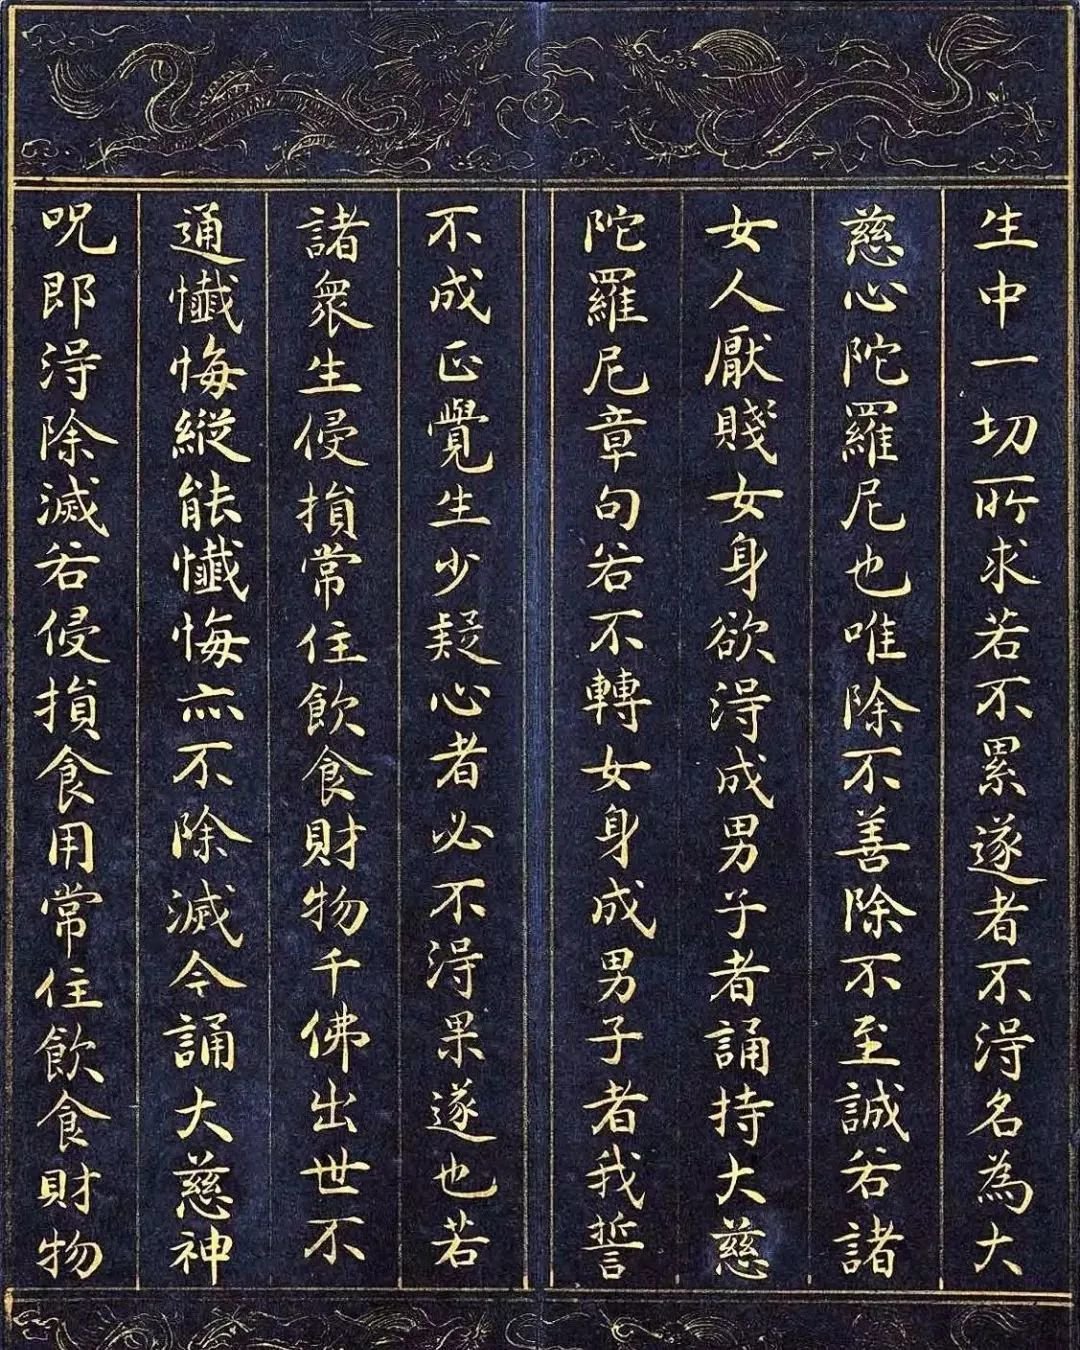 生中一切所求若不累遂者不得名為大
慈心陀羅尼也唯除不善除不至誠若諸
女人厭賤女身欲得成男子者誦持大慈
陀羅尼章句若不轉女身成男子者我誓
不成正覺生少疑心者必不得果遂也若
諸衆生侵損常住飲食財物千佛出世不
通懺悔縱能懺悔亦不除滅今誦大慈神
呪即得除滅若侵損食用常住飲食財物